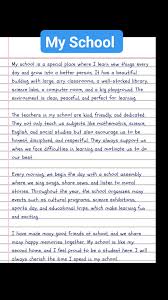 My School
My school is a special place where I learn new things every
day and grow into a better person. It has a beautiful
building with large, airy classrooms, a well-stocked library,
science labs, a computer room, and a big playground. The
environment is clean, peaceful, and perfect for learning.
The teachers in my school are kind, friendly, and dedicated.
They not only teach us subjects like mathematics, science,
English, and social studies but also encourage us to be
honest, disciplined, and respectful. They always support us
when we face difficulties in learning and motivate us to do
our best.
Every morning, we begin the day with a school assembly
where we sing songs, share news, and listen to moral
stories. Throughout the year, the school organizes many
events such as cultural programs, science exhibitions,
sports day, and educational trips, which make learning fun
and exciting.
I have made many good friends at school, and we share
many happy memories together. My school is like my
second home, and I feel proud to be a student here. I will
always cherish the time I spend in my school.